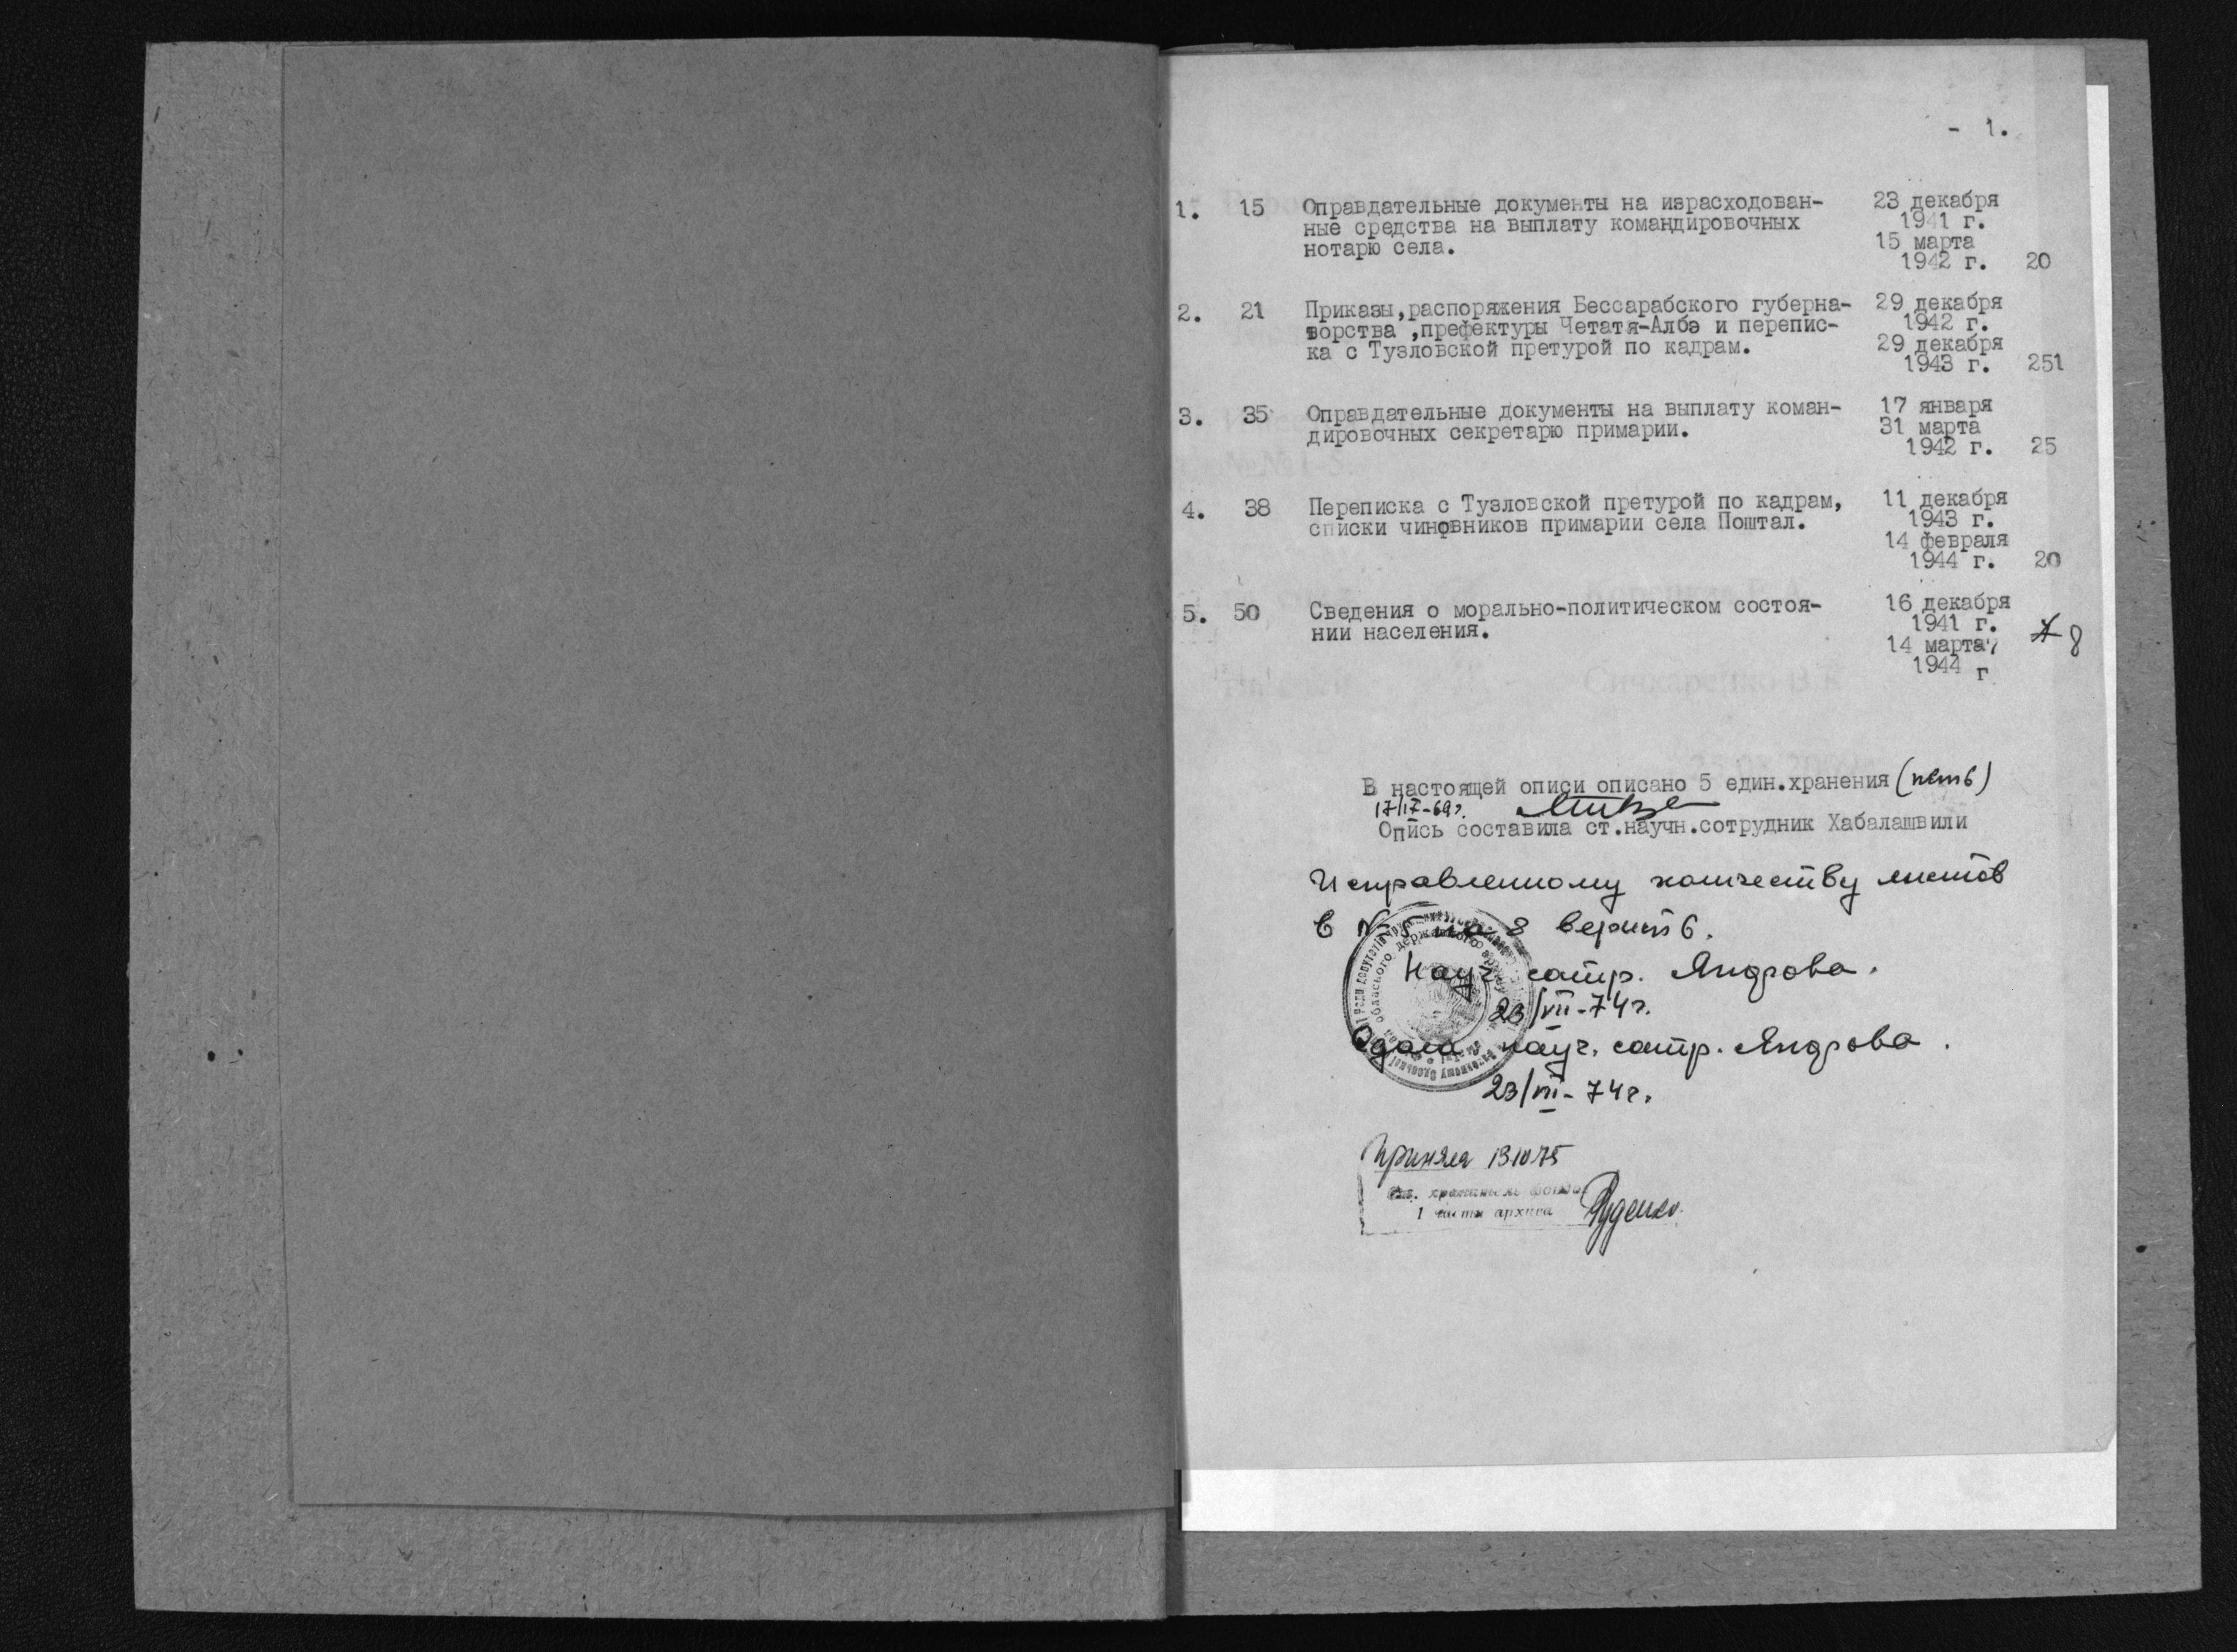 - 1.
1. 15 Оправдательные документы на израсходован- 23 декабря
ные средства на выплату командировочных 1941 г.
нотарю села. 15 марта
1942 г. 20
2. 21 Приказы,распоряжения Бессарабского губерна- 29 декабря
ворства ,префектуры Четатя-Албэ и перепис- 1942 г.
ка с Тузловской претурой по кадрам. 29 декабря
1943 г. 251
3. 35 Оправдательные документы на выплату коман- 17 января
дировочных секретарю примарии. 31 марта
1942 г. 25
4. 38 Переписка с Тузловской претурой по кадрам, 11 декабря
списки чиновников примарии села Поштал. 1943 г.
14 февраля
1944 г. 20
5. 50 Сведения о морально-политическом состоя- 16 декабря
нии населения. 1941 г.
14 марта 8
1944 г
В настоящей описи описано 5 един.хранения (пять)
17/IX-69г.
Опись составила ст.научн.сотрудник Хабалашвили
Исправленному количеству листов
в № 5 на 8 верить.
Науч. сотр. Яндрова.
23/VII-74г.
Сдала науч. сотр. Яндрова.
23/VII-74г.
Приняла 131075
хранитель фондо
1 части архива Руденко.